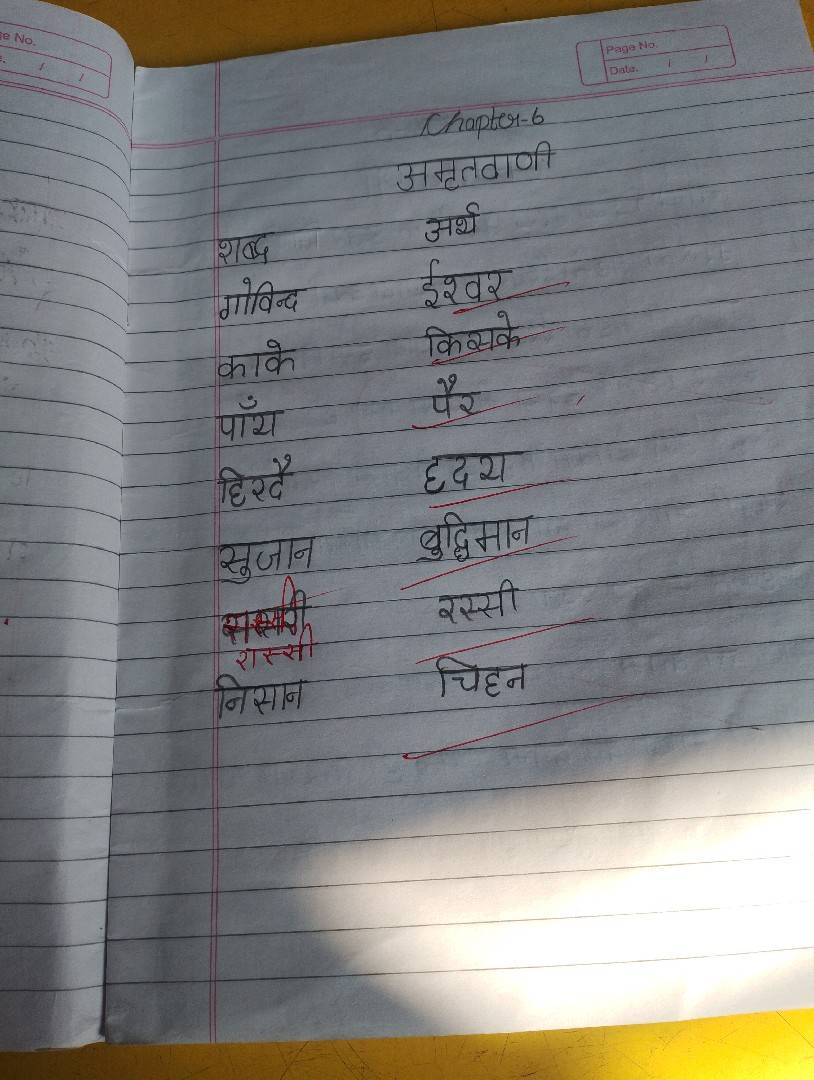 Page No.
Date. / /
Chapter-6
अमृतवाणी
शब्द अर्थ
गोविन्द ईश्वर
काके किसके
पाँय पैर
हिरदै हृदय
सुजान बुद्धिमान
रस्सी
रास्सी
निसान चिहन